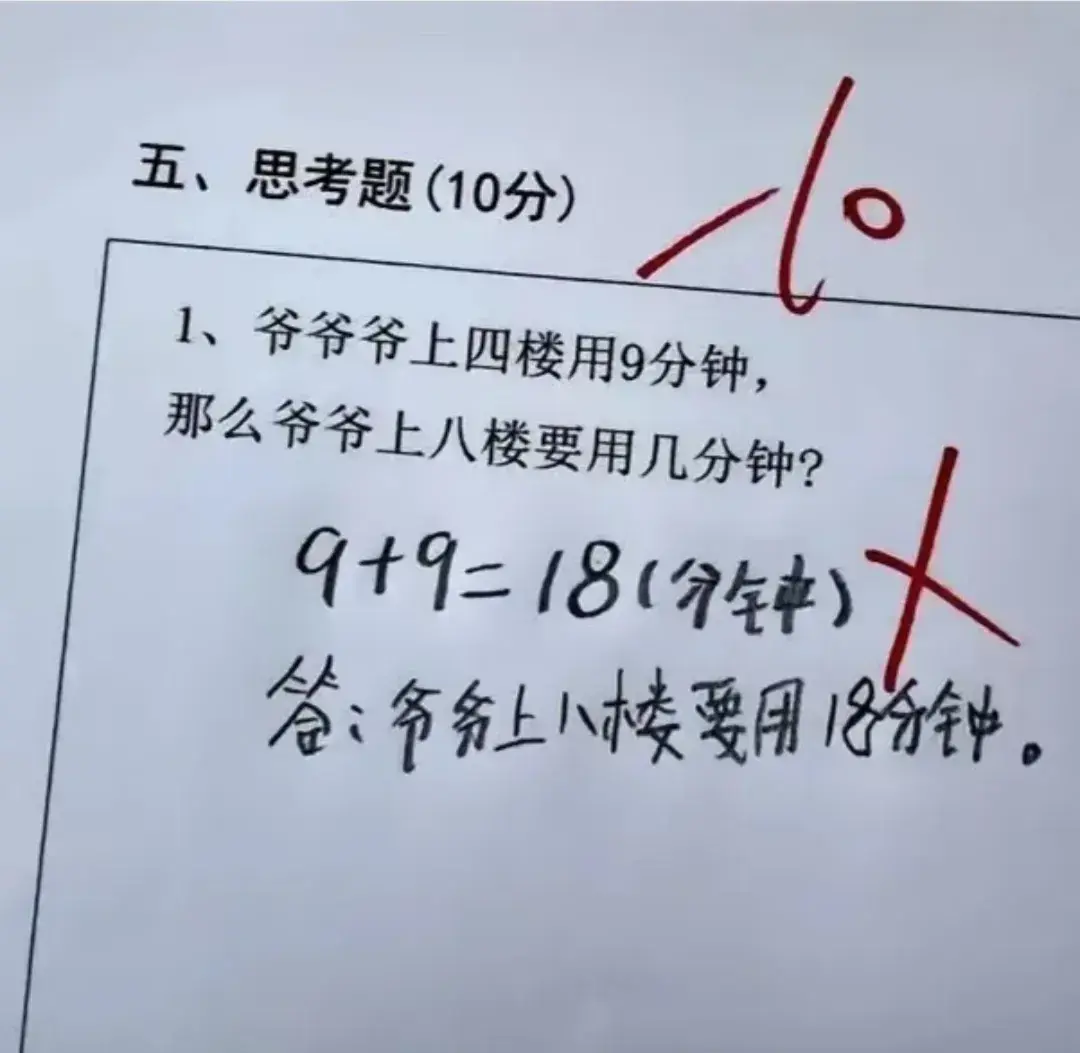 五、思考题(10分)
-10
1、爷爷爷上四楼用9分钟，
那么爷爷上八楼要用几分钟?
9+9=18(分钟)
答：爷爷上八楼要用18分钟。